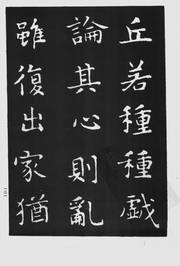 丘若種種戯
論其心則亂
雖復出家猶
101